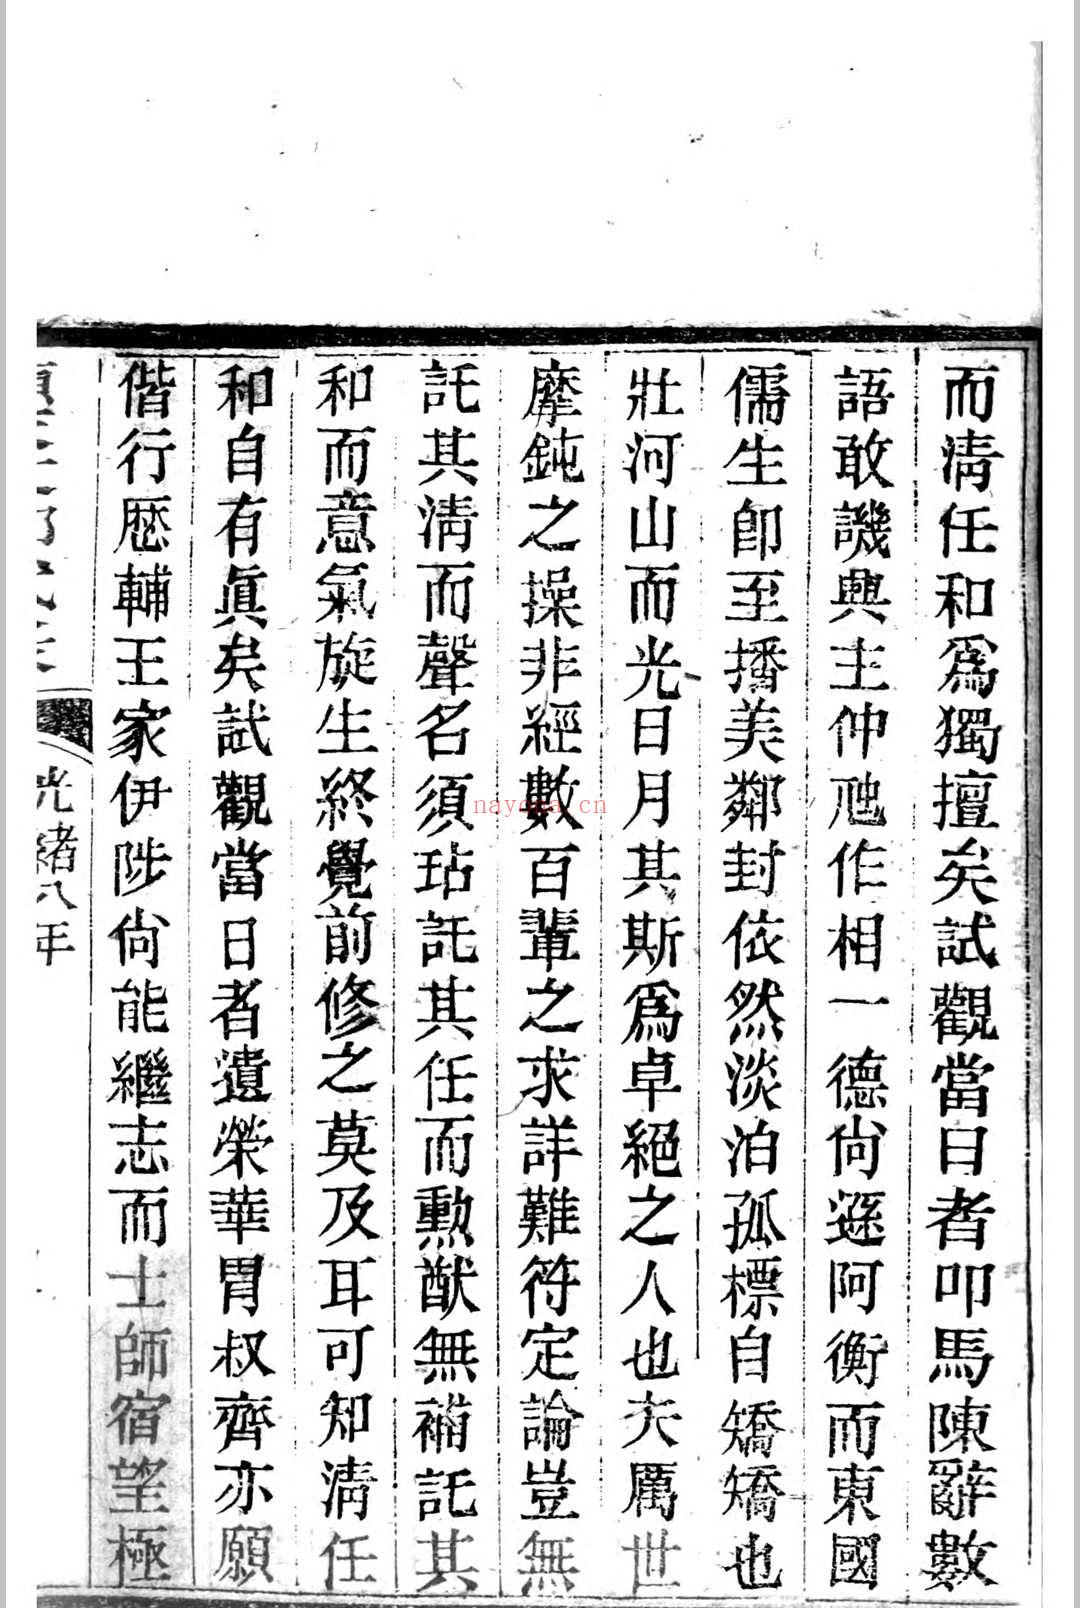 而淸任和爲獨擅矣試觀當日者叩馬陳辭數
語敢譏興主仲虺作相一德尙遜阿衡而東國
儒生卽至播美鄰封依然淡泊孤標自矯矯也
壯河山而光日月其斯爲卓絕之人也夫厲世
摩鈍之操非經數百輩之求詳難符定論豈無
託其淸而聲名須玷託其任而勲猷無補託其
和而意氣旋生終覺前修之莫及耳可知淸任
和自有眞矣試觀當日者遺榮華胄叔齊亦願
偕行歷輔王家伊陟尙能繼志而士師宿望極
光緒八年
nayona.cn